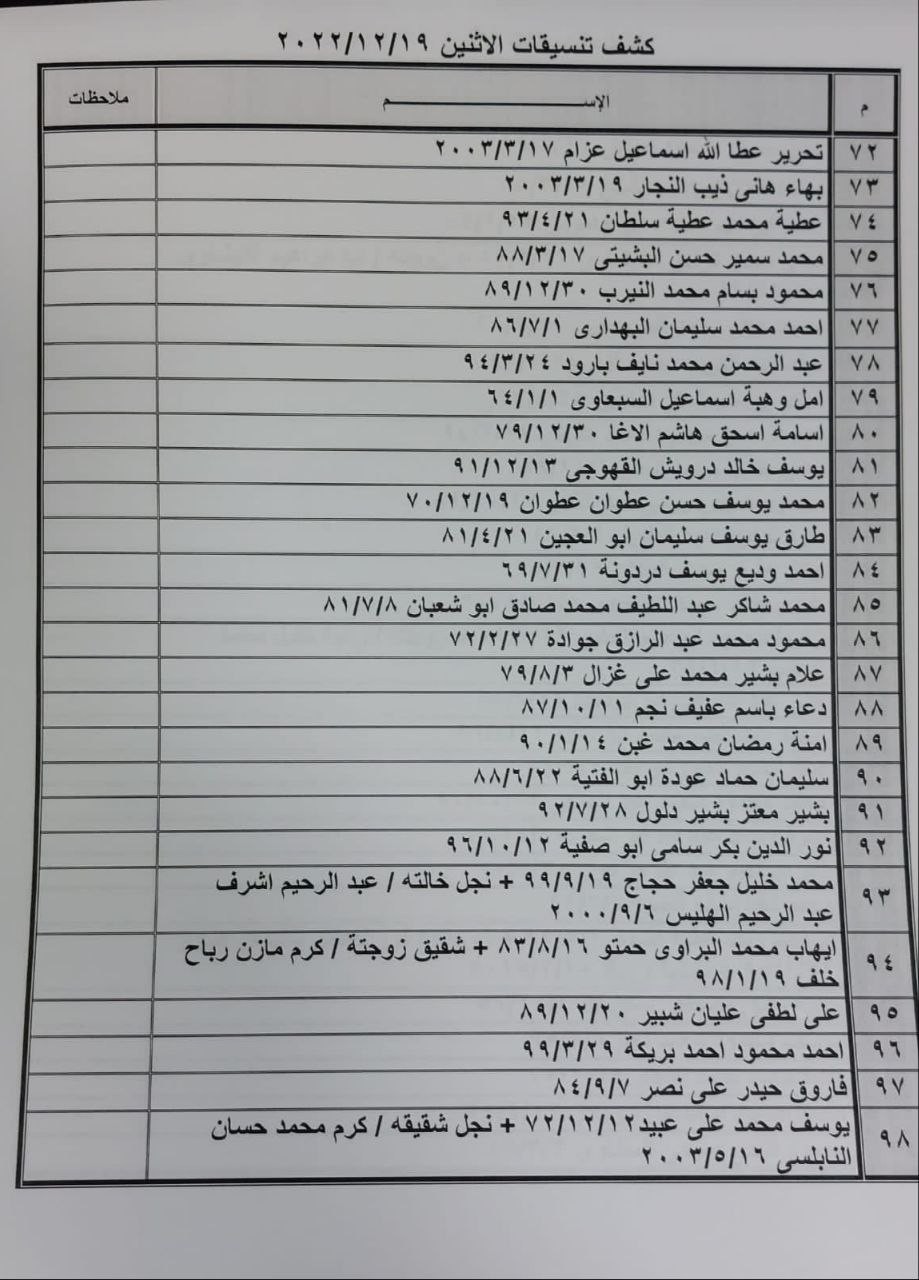 كشف تنسيقات الاثنين ٢٠٢٢/١٢/١٩
م الإســـــــــــم ملاحظات
٧٢ تحرير عطا الله اسماعيل عزام ٢٠٠٣/٣/١٧
٧٣ بهاء هانى ذيب النجار ٢٠٠٣/٣/١٩
٧٤ عطية محمد عطية سلطان ٩٣/٤/٢١
٧٥ محمد سمير حسن البشيتى ٨٨/٣/١٧
٧٦ محمود بسام محمد النيرب ٨٩/١٢/٣٠
٧٧ احمد محمد سليمان البهدارى ٨٦/٧/١
٧٨ عبد الرحمن محمد نايف بارود ٩٤/٣/٢٤
٧٩ امل وهبة اسماعيل السبعاوى ٦٤/١/١
٨٠ اسامة اسحق هاشم الاغا ٧٩/١٢/٣٠
٨١ يوسف خالد درويش القهوجى ٩١/١٢/١٣
٨٢ محمد يوسف حسن عطوان عطوان ٧٠/١٢/١٩
٨٣ طارق يوسف سليمان ابو العجين ٨١/٤/٢١
٨٤ احمد وديع يوسف دردونة ٦٩/٧/٣١
٨٥ محمد شاكر عبد اللطيف محمد صادق ابو شعبان ٨١/٧/٨
٨٦ محمود محمد عبد الرازق جوادة ٧٢/٢/٢٧
٨٧ علام بشير محمد على غزال ٧٩/٨/٣
٨٨ دعاء باسم عفيف نجم ٨٧/١٠/١١
٨٩ امنة رمضان محمد غبن ٩٠/١/١٤
٩٠ سليمان حماد عودة ابو الفتية ٨٨/٦/٢٢
٩١ بشير معتز بشير دلول ٩٢/٧/٢٨
٩٢ نور الدين بكر سامى ابو صفية ٩٦/١٠/١٢
٩٣ محمد خليل جعفر حجاج ٩٩/٩/١٩ + نجل خالته / عبد الرحيم اشرف
عبد الرحيم الهليس ٢٠٠٠/٩/٦
٩٤ ايهاب محمد البراوى حمتو ٨٣/٨/١٦ + شقيق زوجتة / كرم مازن رباح
خلف ٩٨/١/١٩
٩٥ على لطفى عليان شبير ٨٩/١٢/٢٠
٩٦ احمد محمود احمد بريكة ٩٩/٣/٢٩
٩٧ فاروق حيدر على نصر ٨٤/٩/٧
٩٨ يوسف محمد على عبيد٧٢/١٢/١٢ + نجل شقيقه / كرم محمد حسان
النابلسى ٢٠٠٣/٥/١٦